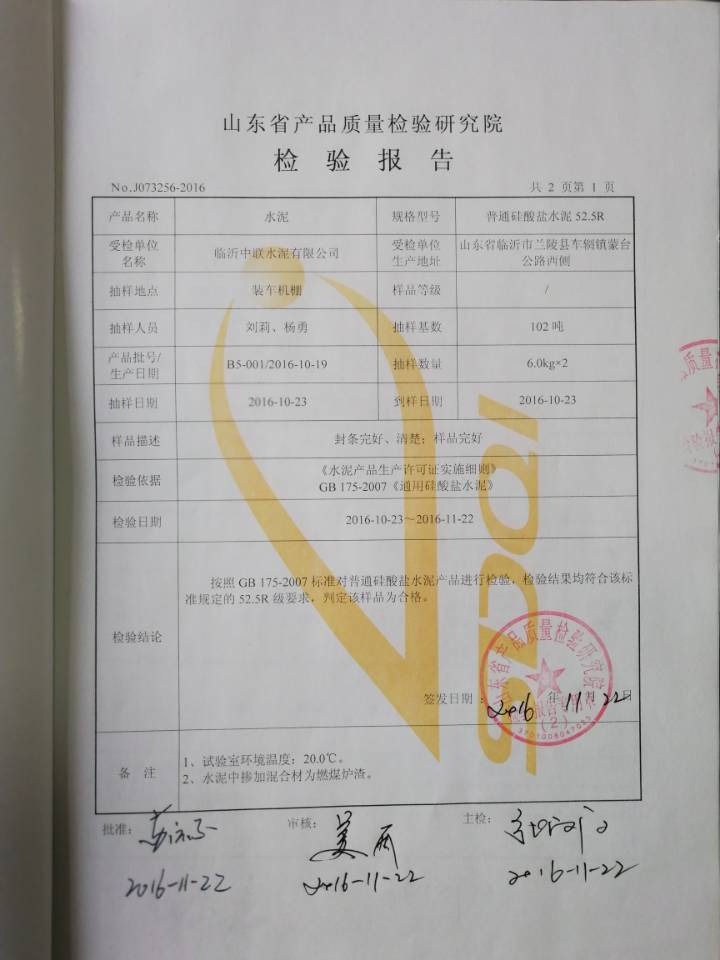 山东省产品质量检验研究院
检验报告
No.J073256-2016
共 2 页第 1 页
产品名称 水泥 规格型号 普通硅酸盐水泥 52.5R
受检单位 名称 临沂中联水泥有限公司 受检单位 生产地址 山东省临沂市兰陵县车辋镇蒙台
公路西侧
抽样地点 装车机棚 样品等级 /
抽样人员 刘莉、杨勇 抽样基数 102 吨
产品批号/ 生产日期 B5-001/2016-10-19 抽样数量 6.0kg×2
抽样日期 2016-10-23 到样日期 2016-10-23
样品描述 封条完好、清楚；样品完好
检验依据 《水泥产品生产许可证实施细则》
GB 175-2007《通用硅酸盐水泥》
检验日期 2016-10-23～2016-11-22
检验结论
按照 GB 175-2007 标准对普通硅酸盐水泥产品进行检验，检验结果均符合该标
准规定的 52.5R 级要求，判定该样品为合格。
签发日期： 2016 年 11 月 22 日
山东省产品质量检验研究院
(2)
SDQI
备 注
1、试验室环境温度：20.0℃。
2、水泥中掺加混合材为燃煤炉渣。
批准： 审核： 主检：
2016-11-22 2016-11-22 2016-11-22